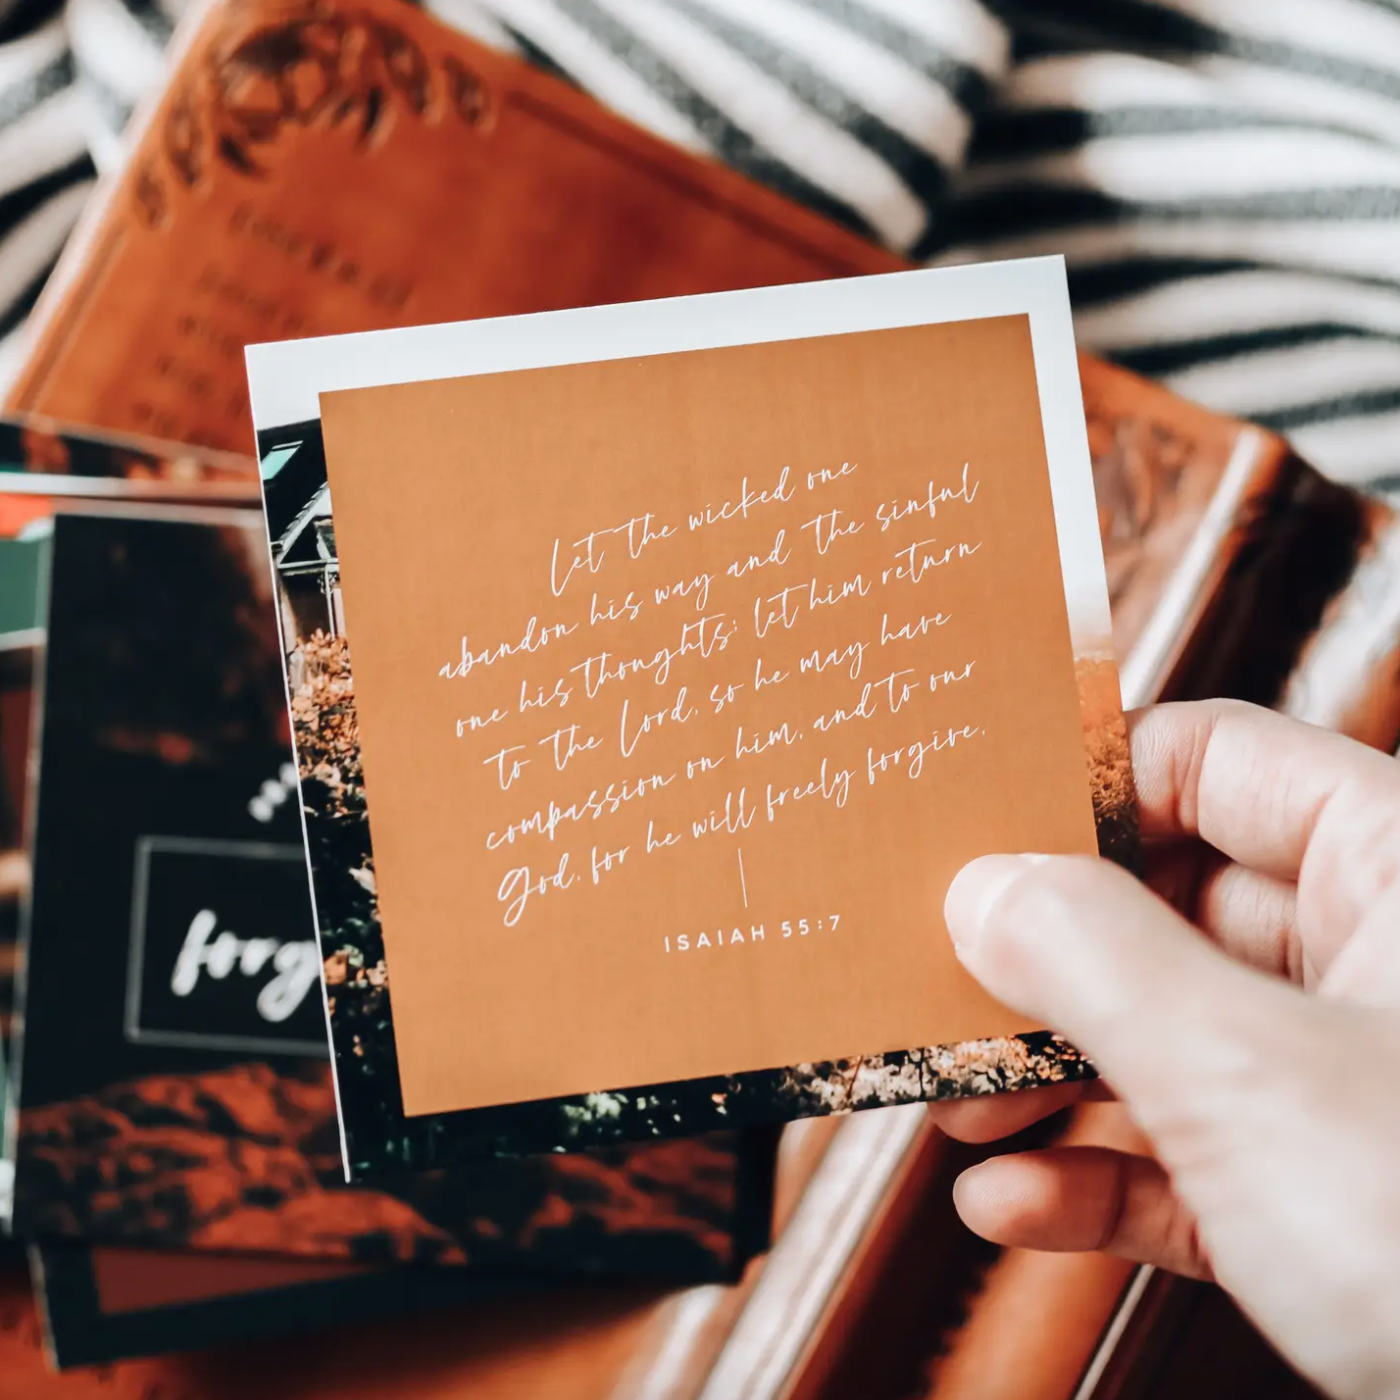 let the wicked one
abandon his way and the sinful
one his thoughts; let him return
to the Lord, so he may have
compassion on him, and to our
God, for he will freely forgive.
ISAIAH 55:7
forg